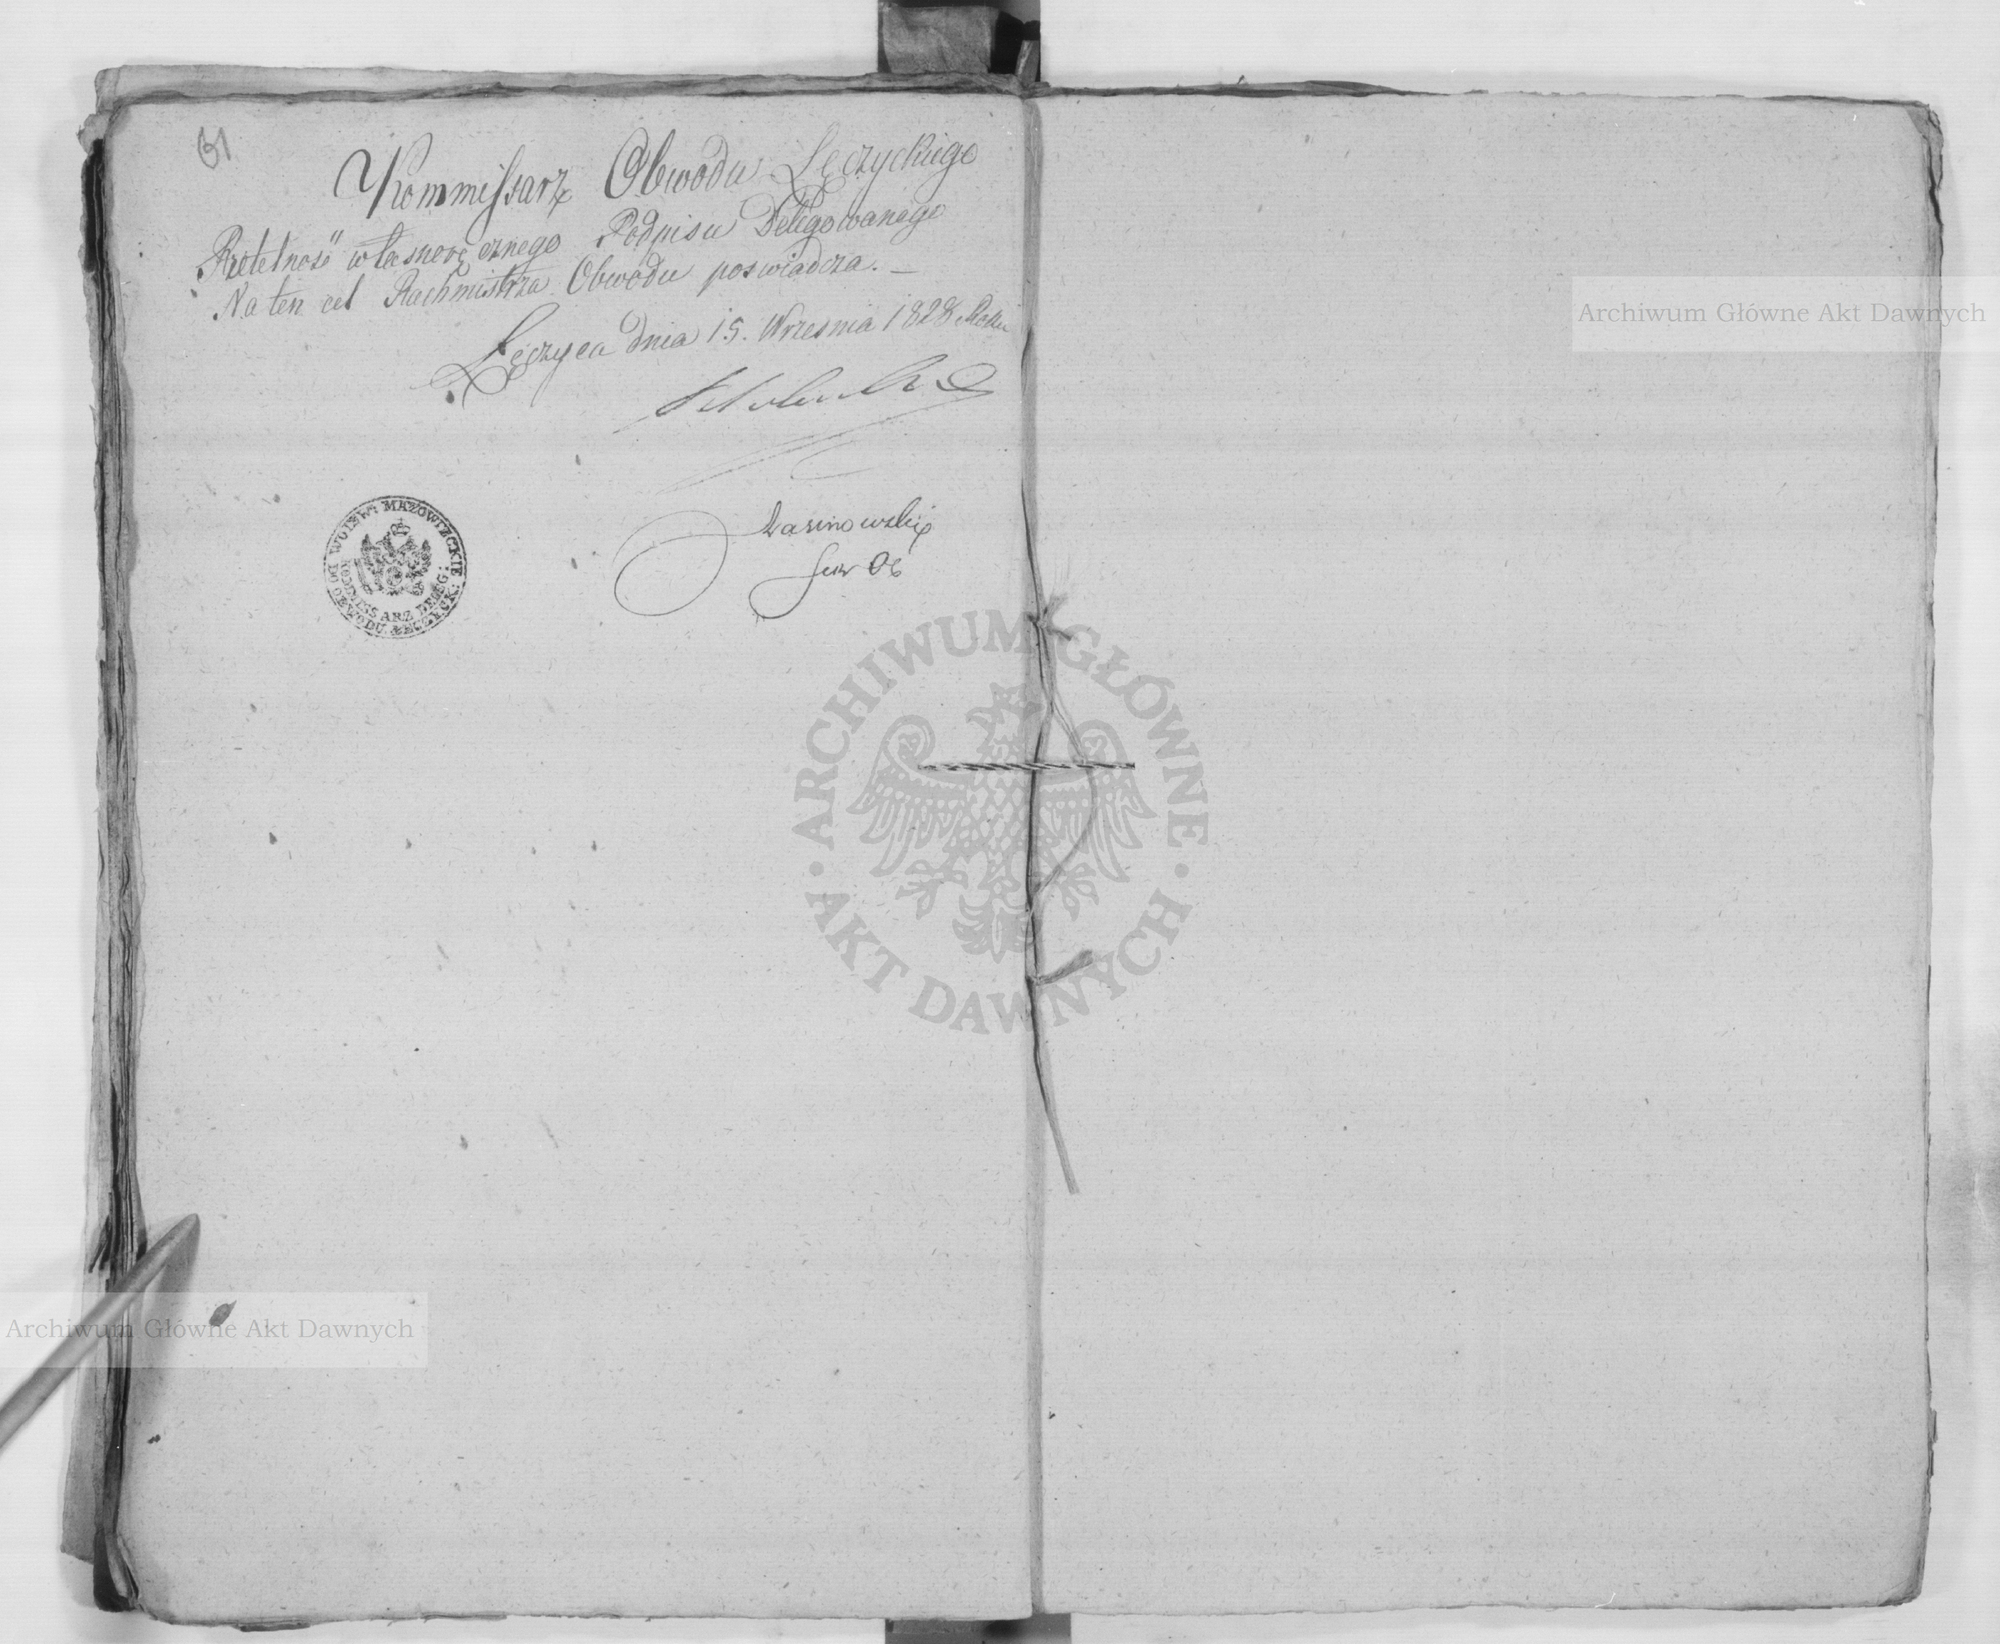 51
Kommissarz Obwodu Łęczyckiego
Rzetelność własnoręcznego Podpisu Delegowanego
Na ten cel Rachmistrza Obwodu poswiadcza. —
Łęczyca dnia 15. Wrzesnia 1828 Roku
Sekr Ob
WOIEW: MAZOWIECKIE
KOMMISSARZ DELEG:
DO OBWODU ŁĘCZYCK:
Archiwum Główne Akt Dawnych
ARCHIWUM GŁÓWNE
AKT DAWNYCH
Archiwum Główne Akt Dawnych